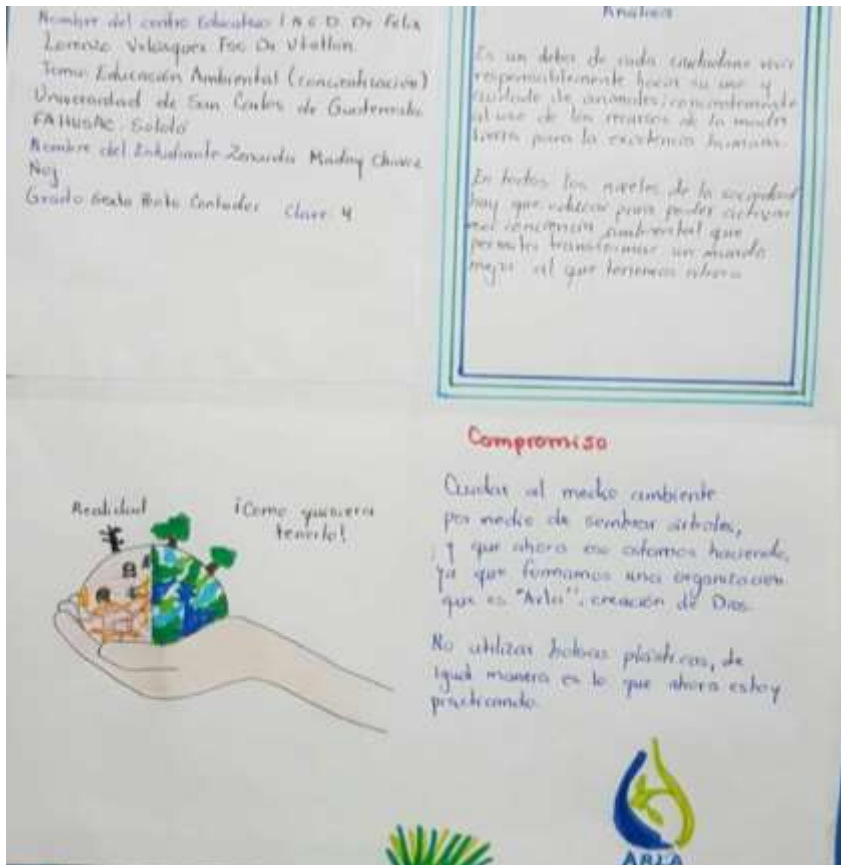 Nombre del centro Educativo I.N.E.D. Dr Felix
Lorenzo Velásquez Foc De Utatlán
Tema: Educación Ambiental (concientización)
Universidad de San Carlos de Guatemala
FAHUSAC. Sololá
Nombre del Estudiante Zenaida Chavez
Noj
Grado Sexto Perito Contador Clave: 4
Analisis
Es un deber de cada ciudadano vivir
responsablemente hacia su uso y
cuidado de animales, 
al uso de los recursos de la madre
tierra para la existencia humana.
En todos los niveles de la sociedad
hay que educar para poder activar
conciencia ambiental que
permita transformar un mundo
mejor al que tenemos ahora
Realidad
¡Como quisiera
tenerlo!
Compromiso
Cuidar al medio ambiente
por medio de sembrar árboles,
y que ahora eso estamos haciendo,
ya que formamos una organización
que es "Arla", creación de Dios.
No utilizar bolsas plásticas, de
igual manera es lo que ahora estoy
practicando.
ARLA